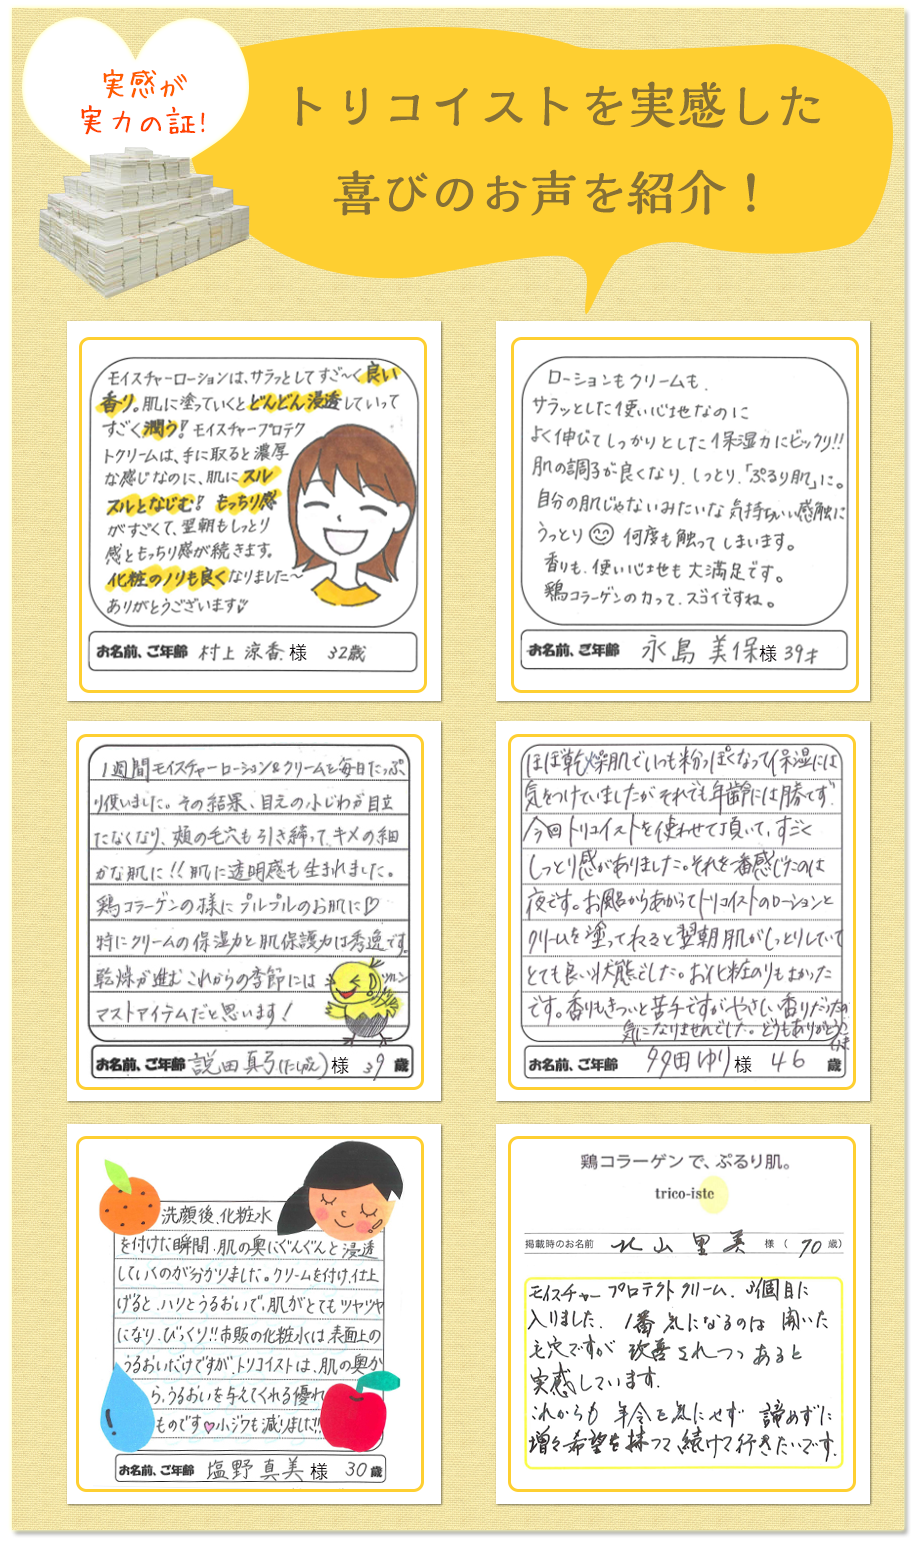 実感が
実力の証!
トリコイストを実感した
喜びのお声を紹介！
モイスチャーローションは、サラッとしてすご〜く良い
香り。肌に塗っていくとどんどん浸透していって
すごく潤う! モイスチャープロテク
トクリームは、手に取ると濃厚
な感じなのに、肌にスル
スルとなじむ! もっちり感
がすごくて、翌朝もしっとり
感ともっちり感が続きます。
化粧のノリも良くなりました〜
ありがとうございます♡
お名前、ご年齢 村上 涼香 様 32歳
ローションもクリームも、
サラッとした使い心地なのに
よく伸びてしっかりとした保湿力にビックリ!!
肌の調子が良くなり、しっとり、「ぷるり肌」に。
自分の肌じゃないみたいな気持ちいい感触に
うっとり 何度も触ってしまいます。
香りも、使い心地も大満足です。
鶏コラーゲンの力って、スゴイですね。
お名前、ご年齢 永島 美保様 39才
1週間モイスチャーローション&クリームを毎日たっぷ
り使いました。その結果、目元の小じわが目立
たなくなり、頬の毛穴も引き締って、キメの細
かな肌に!! 肌に透明感も生まれました。
鶏コラーゲンの様にプルプルのお肌に♡
特にクリームの保湿力と肌保護力は秀逸です。
乾燥が進むこれからの季節には
ツルン
マストアイテムだと思います!
お名前、ご年齢 説田 真弓 様 39 歳
ほぼ乾燥肌でいつも粉っぽくなって保湿には
気をつけていましたがそれでも年齢には勝てず、
今回トリコイストを使わせて頂いて、すごく
しっとり感がありました。それを一番感じたのは
夜です。お風呂からあがってトリコイストのローションと
クリームを塗ってねると翌朝肌がしっとりしていて
とても良い状態でした。お化粧のりもよかった
です。香りもきついと苦手ですがやさしい香りだったの
気になりませんでした。どうもありがとうご
お名前、ご年齢 多田 ゆり 様 46 歳
洗顔後、化粧水
を付けた瞬間、肌の奥にぐんぐんと浸透
していくのが分かりました。クリームを付け、仕上
げると、ハリとうるおいで、肌がとてもツヤツヤ
になり、びっくり!! 市販の化粧水は表面上の
うるおいだけですが、トリコイストは、肌の奥か
ら、うるおいを与えてくれる優れ
ものです♡小ジワも減りました!!
お名前、ご年齢 塩野 真美 様 30 歳
鶏コラーゲンで、ぷるり肌。
trico-iste
掲載時のお名前 北山 里美 様 ( 70 歳)
モイスチャープロテクトクリーム、3個目に
入りました。 1番気になるのは 開いた
毛穴ですが 改善されつつあると
実感しています。
これからも 年令を気にせず 諦めずに
増々希望を持って、続けて行きたいです。